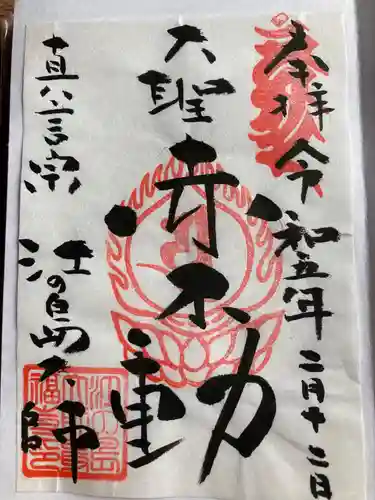 奉拝 令和五年 二月十二日
大聖 赤不動
真言宗 江の島大師